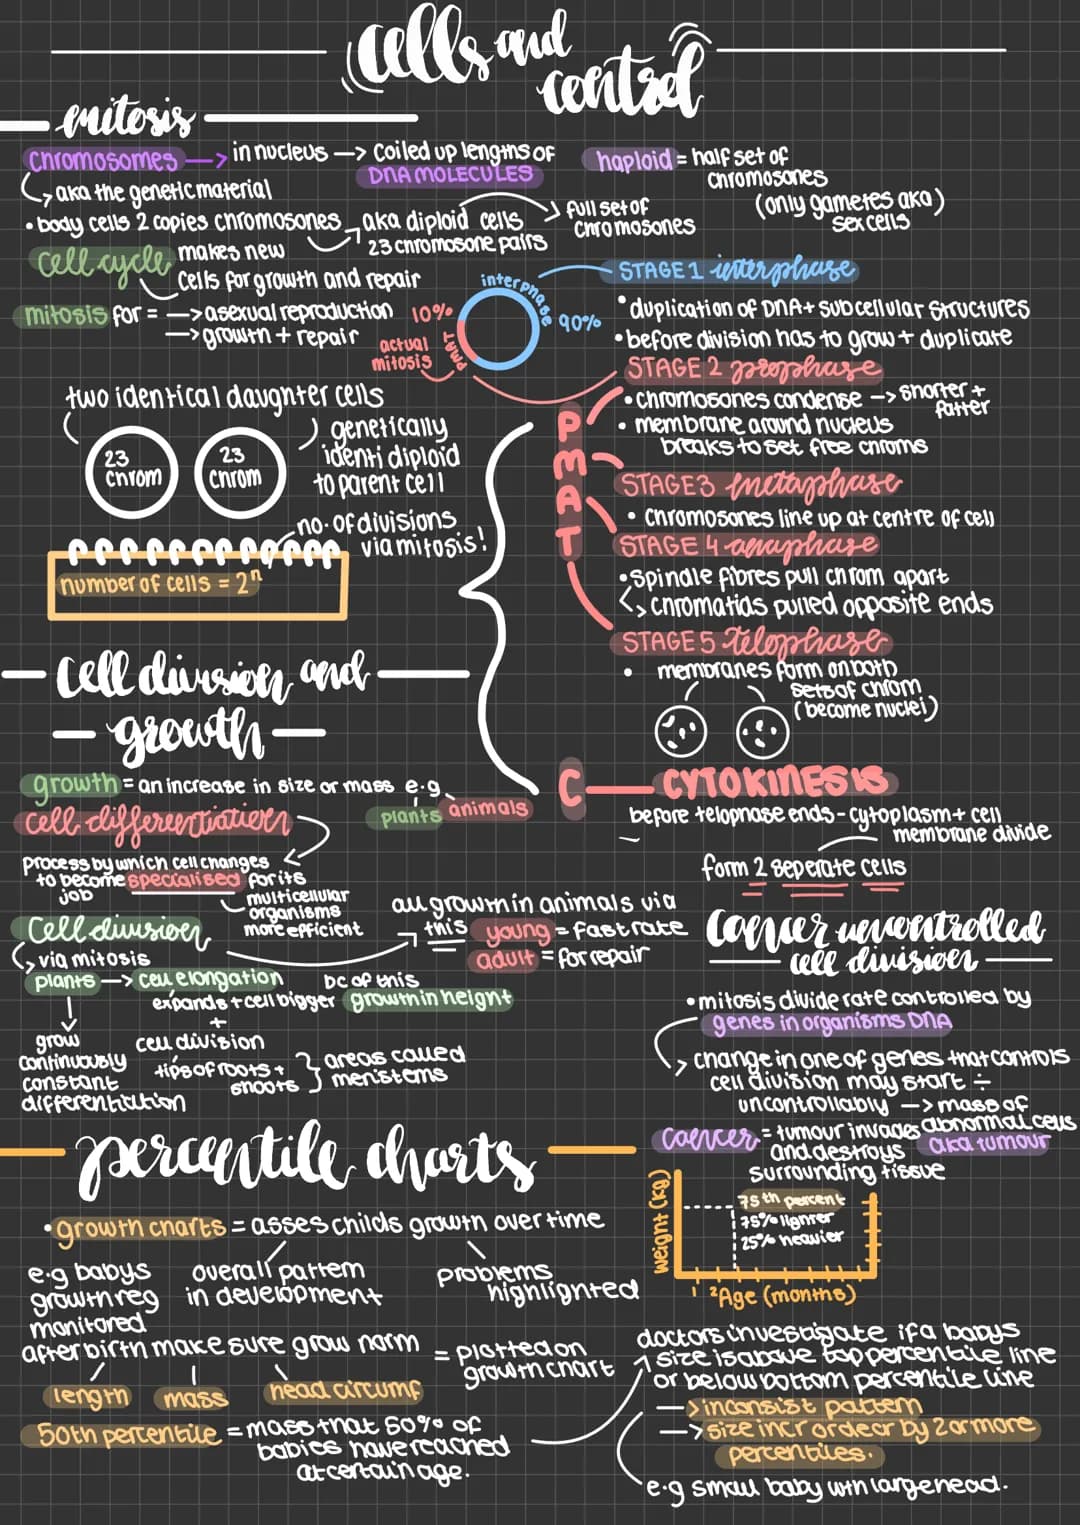 cells and
control
mitosis
chromosomes → in nucleus → coiled up lengths of
DNA MOLECULES
↳ aka the genetic material
haploid = half set of
chromosones
(only gametes aka)
sex cells
• body cells 2 copies chromosones → aka diploid cells → full set of
23 chromosone pairs
chromosones
cell cycle makes new
cells for growth and repair
mitosis for = → asexual reproduction
→ growth + repair
10%
interphase
90%
actual
mitosis
PMAT
STAGE 1 interphase
• duplication of DNA + subcellular structures
• before division has to grow + duplicate
STAGE 2 prophase
• chromosones condense → shorter +
fatter
• membrane around nucleus
breaks to set free chroms
P
M
A
T
STAGE 3 metaphase
• chromosones line up at centre of cell
STAGE 4 anaphase
• spindle fibres pull chrom apart
↳ chromatids pulled opposite ends
STAGE 5 telophase
• membranes form on both
sets of chrom
(become nuclei)
two identical daughter cells
23
chrom
23
chrom
genetically
identi diploid
to parent cell
no. of divisions
via mitosis!
number of cells = 2ⁿ
C
CYTOKINESIS
before telophase ends - cytoplasm + cell
membrane divide
form 2 seperate cells
cell division and
growth
growth = an increase in size or mass e.g
plants animals
cell differentiation
process by which cell changes
to become specialised for its
job
multicellular
organisms
more efficient
cell division
↳ via mitosis
all growth in animals via
this young = fast rate
adult = for repair
plants → cell elongation
expands + cell bigger
bc of this
growth in height
+
cell division
tips of roots +
shoots
} areas called
meristems
grow
continuously
constant
differentiation
cancer uncontrolled
cell division
• mitosis divide rate controlled by
genes in organisms DNA
↳ change in one of genes that controls
cell division may start ÷
uncontrollably → mass of
abnormal cells
aka tumour
cancer = tumour invades
and destroys
surrounding tissue
percentile charts
• growth charts = asses childs growth over time
e.g babys
growth reg
monitored
overall pattern
in development
problems
highlighted
after birth make sure grow norm = plotted on
growth chart
length
mass
head circumf
50th percentile = mass that 50% of
babies have reached
at certain age.
weight (kg)
75th percent
75% lighter
25% heavier
1 2 Age (months)
doctors investigate if a babys
size is above top percentile line
or below bottom percentile line
→ inconsist pattern
→ size incr or decr by 2 or more
percentiles.
e.g small baby wth large head.